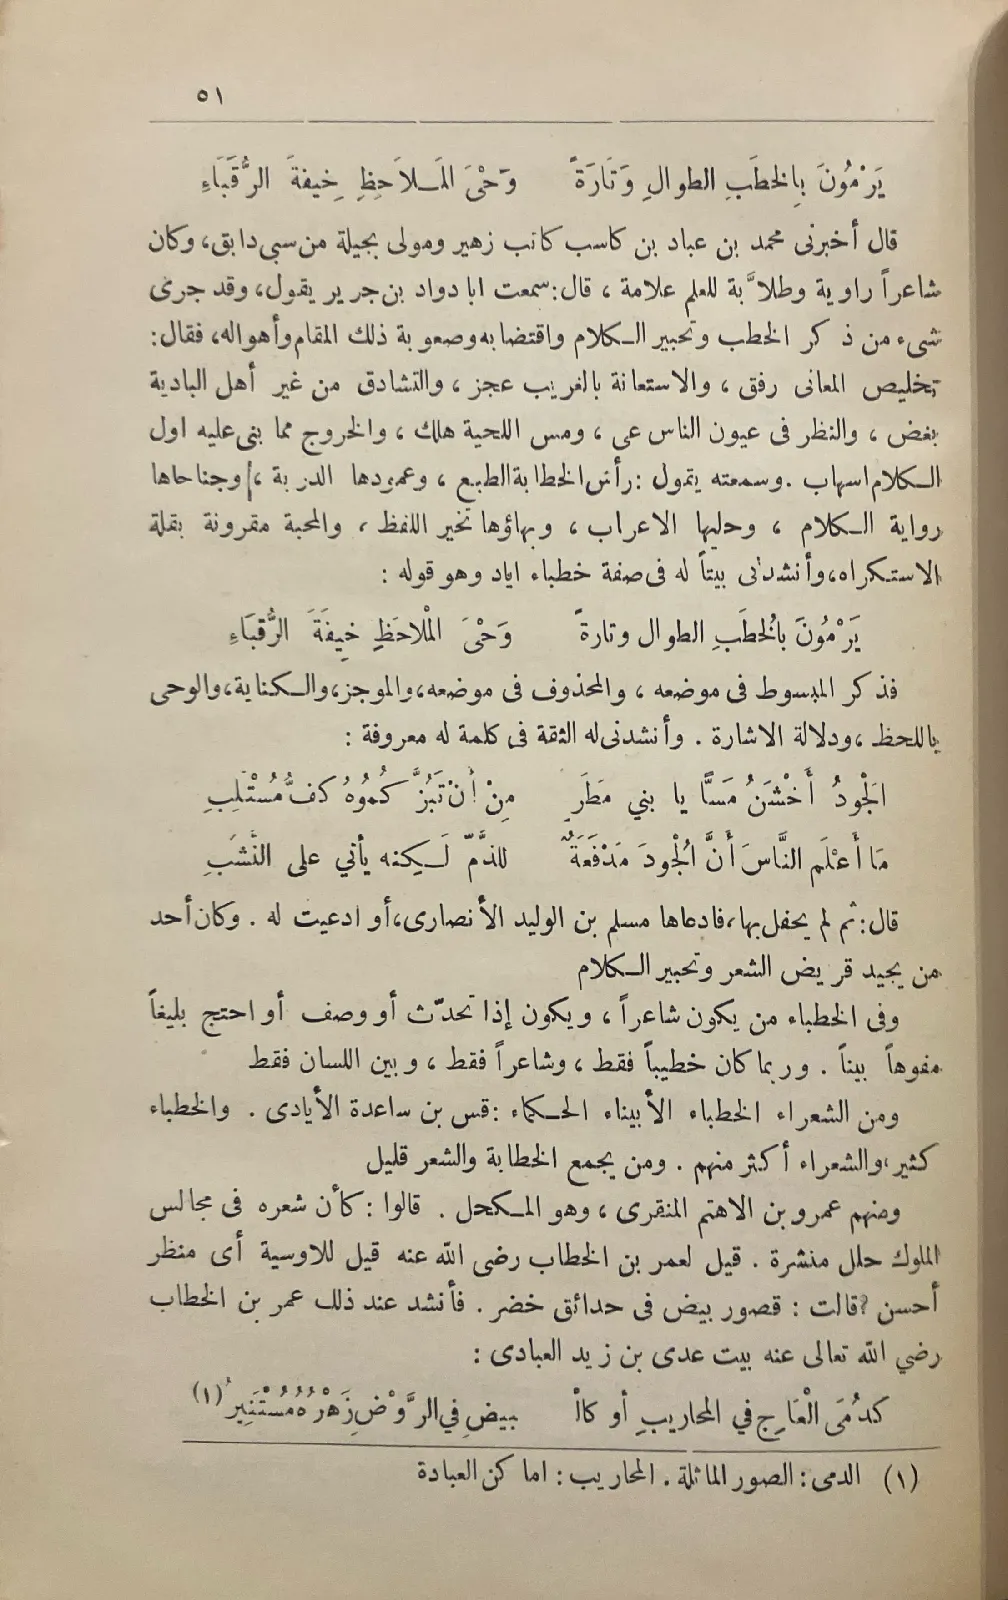 ٥١
يَرْمُونَ بِالخطَبِ الطوالِ وَتَارَةً وَحْىَ المَـلاَحِظِ خِيفةَ الرُّقَبَاءِ
قال أخبرنى محمد بن عباد بن كاسب كاتب زهير ومولى بجيلة من سبى دابق، وكان
شاعراً راوية وطلاَّبة للعلم علامة ، قال: سمعت ابا دواد بن جرير يقول، وقد جرى
شىء من ذكر الخطب وتحبير الـكلام واقتضابه وصعوبة ذلك المقام وأهواله، فقال:
تخليص المعانى رفق ، والاستعانة بالغريب عجز ، والتشادق من غير أهل البادية
بغض ، والنظر فى عيون الناس عى ، ومس اللحية هلك ، والخروج مما بنى عليه اول
الـكلام اسهاب . وسمعته يقول : رأس الخطابة الطبع ، وعمودها الدربة ، وجناحاها
رواية الـكلام ، وحليها الاعراب ، وبهاؤها تخير اللفظ ، والمحبة مقرونة بقلة
الاستـكراه، وأنشدنى بيتاً له فى صفة خطباء اياد وهو قوله :
يَرْمُونَ بالْخطَبِ الطوال وتارةً وَحْىَ الْملاحَظِ خِيفَةَ الرُّقبَاءِ
فذكر المبسوط فى موضعه ، والمحذوف فى موضعه، والموجز، والـكناية، والوحى
باللحظ ، ودلالة الاشارة . وأنشدنى له الثقة فى كلمة له معروفة :
الْجودُ أَخْشَنُ مَسًّا يا بني مَطَرٍ مِنْ أنْ تَبُزَّكُمُوهُ كفُّ مُسْتَلِبِ
مَا أَعْلَم النَّاسَ أَنَّ الْجودَ مَدْفَعَةٌ للذَّمّ لَـكِنه يأتي على النَّشَبِ
قال: ثم لم يحفل بها، فادعاها مسلم بن الوليد الأنصارى، أو ادعيت له . وكان أحد
من يجيد قريض الشعر وتحبير الـكلام
وفى الخطباء من يكون شاعراً ، ويكون إذا تحدّث أو وصف أو احتج بليغاً
مفوهاً بيناً . وربما كان خطيباً فقط ، وشاعراً فقط ، وبين اللسان فقط
ومن الشعراء الخطباء الأبيناء الحـكماء : قس بن ساعدة الأيادى . والخطباء
كثير، والشعراء أكثر منهم . ومن يجمع الخطابة والشعر قليل
ومنهم عمرو بن الاهتم المنقرى ، وهو المـكحل . قالوا : كأن شعره فى مجالس
الملوك حلل منشرة . قيل لعمر بن الخطاب رضى الله عنه قيل للاوسية أى منظر
أحسن ؟ قالت : قصور بيض فى حدائق خضر . فأنشد عند ذلك عمر بن الخطاب
رضي الله تعالى عنه بيت عدى بن زيد العبادى :
كدُمَى الْعَاجِ في المحاريبِ أو كالْ بيضِ في الرَّوْضِ زَهْرُهُ مُسْتَنِيرُ (١)
(١) الدمى : الصور الماثلة . المحاريب : اماكن العبادة